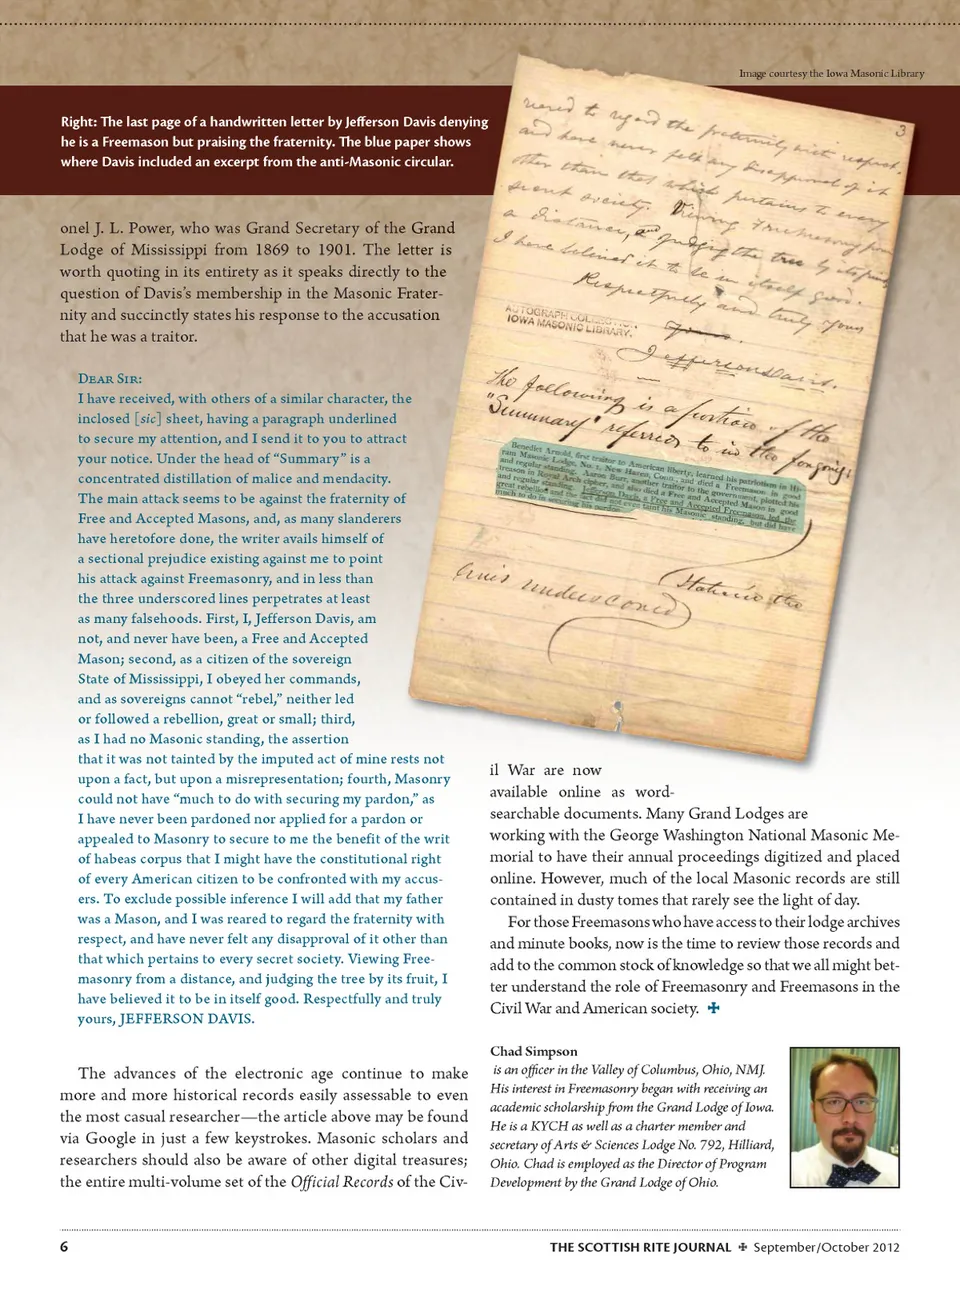 Image courtesy the Iowa Masonic Library
Right: The last page of a handwritten letter by Jefferson Davis denying
he is a Freemason but praising the fraternity. The blue paper shows
where Davis included an excerpt from the anti-Masonic circular.
onel J. L. Power, who was Grand Secretary of the Grand
Lodge of Mississippi from 1869 to 1901. The letter is
worth quoting in its entirety as it speaks directly to the
question of Davis’s membership in the Masonic Frater-
nity and succinctly states his response to the accusation
that he was a traitor.
Dear Sir:
I have received, with others of a similar character, the
inclosed [sic] sheet, having a paragraph underlined
to secure my attention, and I send it to you to attract
your notice. Under the head of “Summary” is a
concentrated distillation of malice and mendacity.
The main attack seems to be against the fraternity of
Free and Accepted Masons, and, as many slanderers
have heretofore done, the writer avails himself of
a sectional prejudice existing against me to point
his attack against Freemasonry, and in less than
the three underscored lines perpetrates at least
as many falsehoods. First, I, Jefferson Davis, am
not, and never have been, a Free and Accepted
Mason; second, as a citizen of the sovereign
State of Mississippi, I obeyed her commands,
and as sovereigns cannot “rebel,” neither led
or followed a rebellion, great or small; third,
as I had no Masonic standing, the assertion
that it was not tainted by the imputed act of mine rests not
upon a fact, but upon a misrepresentation; fourth, Masonry
could not have “much to do with securing my pardon,” as
I have never been pardoned nor applied for a pardon or
appealed to Masonry to secure to me the benefit of the writ
of habeas corpus that I might have the constitutional right
of every American citizen to be confronted with my accus-
ers. To exclude possible inference I will add that my father
was a Mason, and I was reared to regard the fraternity with
respect, and have never felt any disapproval of it other than
that which pertains to every secret society. Viewing Free-
masonry from a distance, and judging the tree by its fruit, I
have believed it to be in itself good. Respectfully and truly
yours, JEFFERSON DAVIS.
The advances of the electronic age continue to make
more and more historical records easily assessable to even
the most casual researcher—the article above may be found
via Google in just a few keystrokes. Masonic scholars and
researchers should also be aware of other digital treasures;
the entire multi-volume set of the Official Records of the Civ-
3
reared to regard the fraternity with respect,
and have never felt any disapproval of it
other than that which pertains to every
secret society. Viewing Freemasonry from
a distance, and judging the tree by its fruit
I have believed it to be in itself good.
Respectfully and truly yours
Jefferson Davis.
AUTOGRAPH COLLECTION
IOWA MASONIC LIBRARY.
The following is a portion of the
"Summary" referred to in the foregoing:
Benedict Arnold, first traitor to American liberty, learned his patriotism in Hi-
ram Masonic Lodge, No. 1, New Haven, Conn., and died a Freemason in good
and regular standing. Aaron Burr, another traitor to the government, plotted his
treason in Royal Arch cipher, and also died a Free and Accepted Mason in good
and regular standing. Jefferson Davis, a Free and Accepted Freemason, led the
great rebellion and the act did not even taint his Masonic standing, but did have
much to do in securing his pardon.
lines underscored
il War are now
available online as word-
searchable documents. Many Grand Lodges are
working with the George Washington National Masonic Me-
morial to have their annual proceedings digitized and placed
online. However, much of the local Masonic records are still
contained in dusty tomes that rarely see the light of day.
For those Freemasons who have access to their lodge archives
and minute books, now is the time to review those records and
add to the common stock of knowledge so that we all might bet-
ter understand the role of Freemasonry and Freemasons in the
Civil War and American society.
Chad Simpson
is an officer in the Valley of Columbus, Ohio, NMJ.
His interest in Freemasonry began with receiving an
academic scholarship from the Grand Lodge of Iowa.
He is a KYCH as well as a charter member and
secretary of Arts & Sciences Lodge No. 792, Hilliard,
Ohio. Chad is employed as the Director of Program
Development by the Grand Lodge of Ohio.
6
THE SCOTTISH RITE JOURNAL ✠ September/October 2012